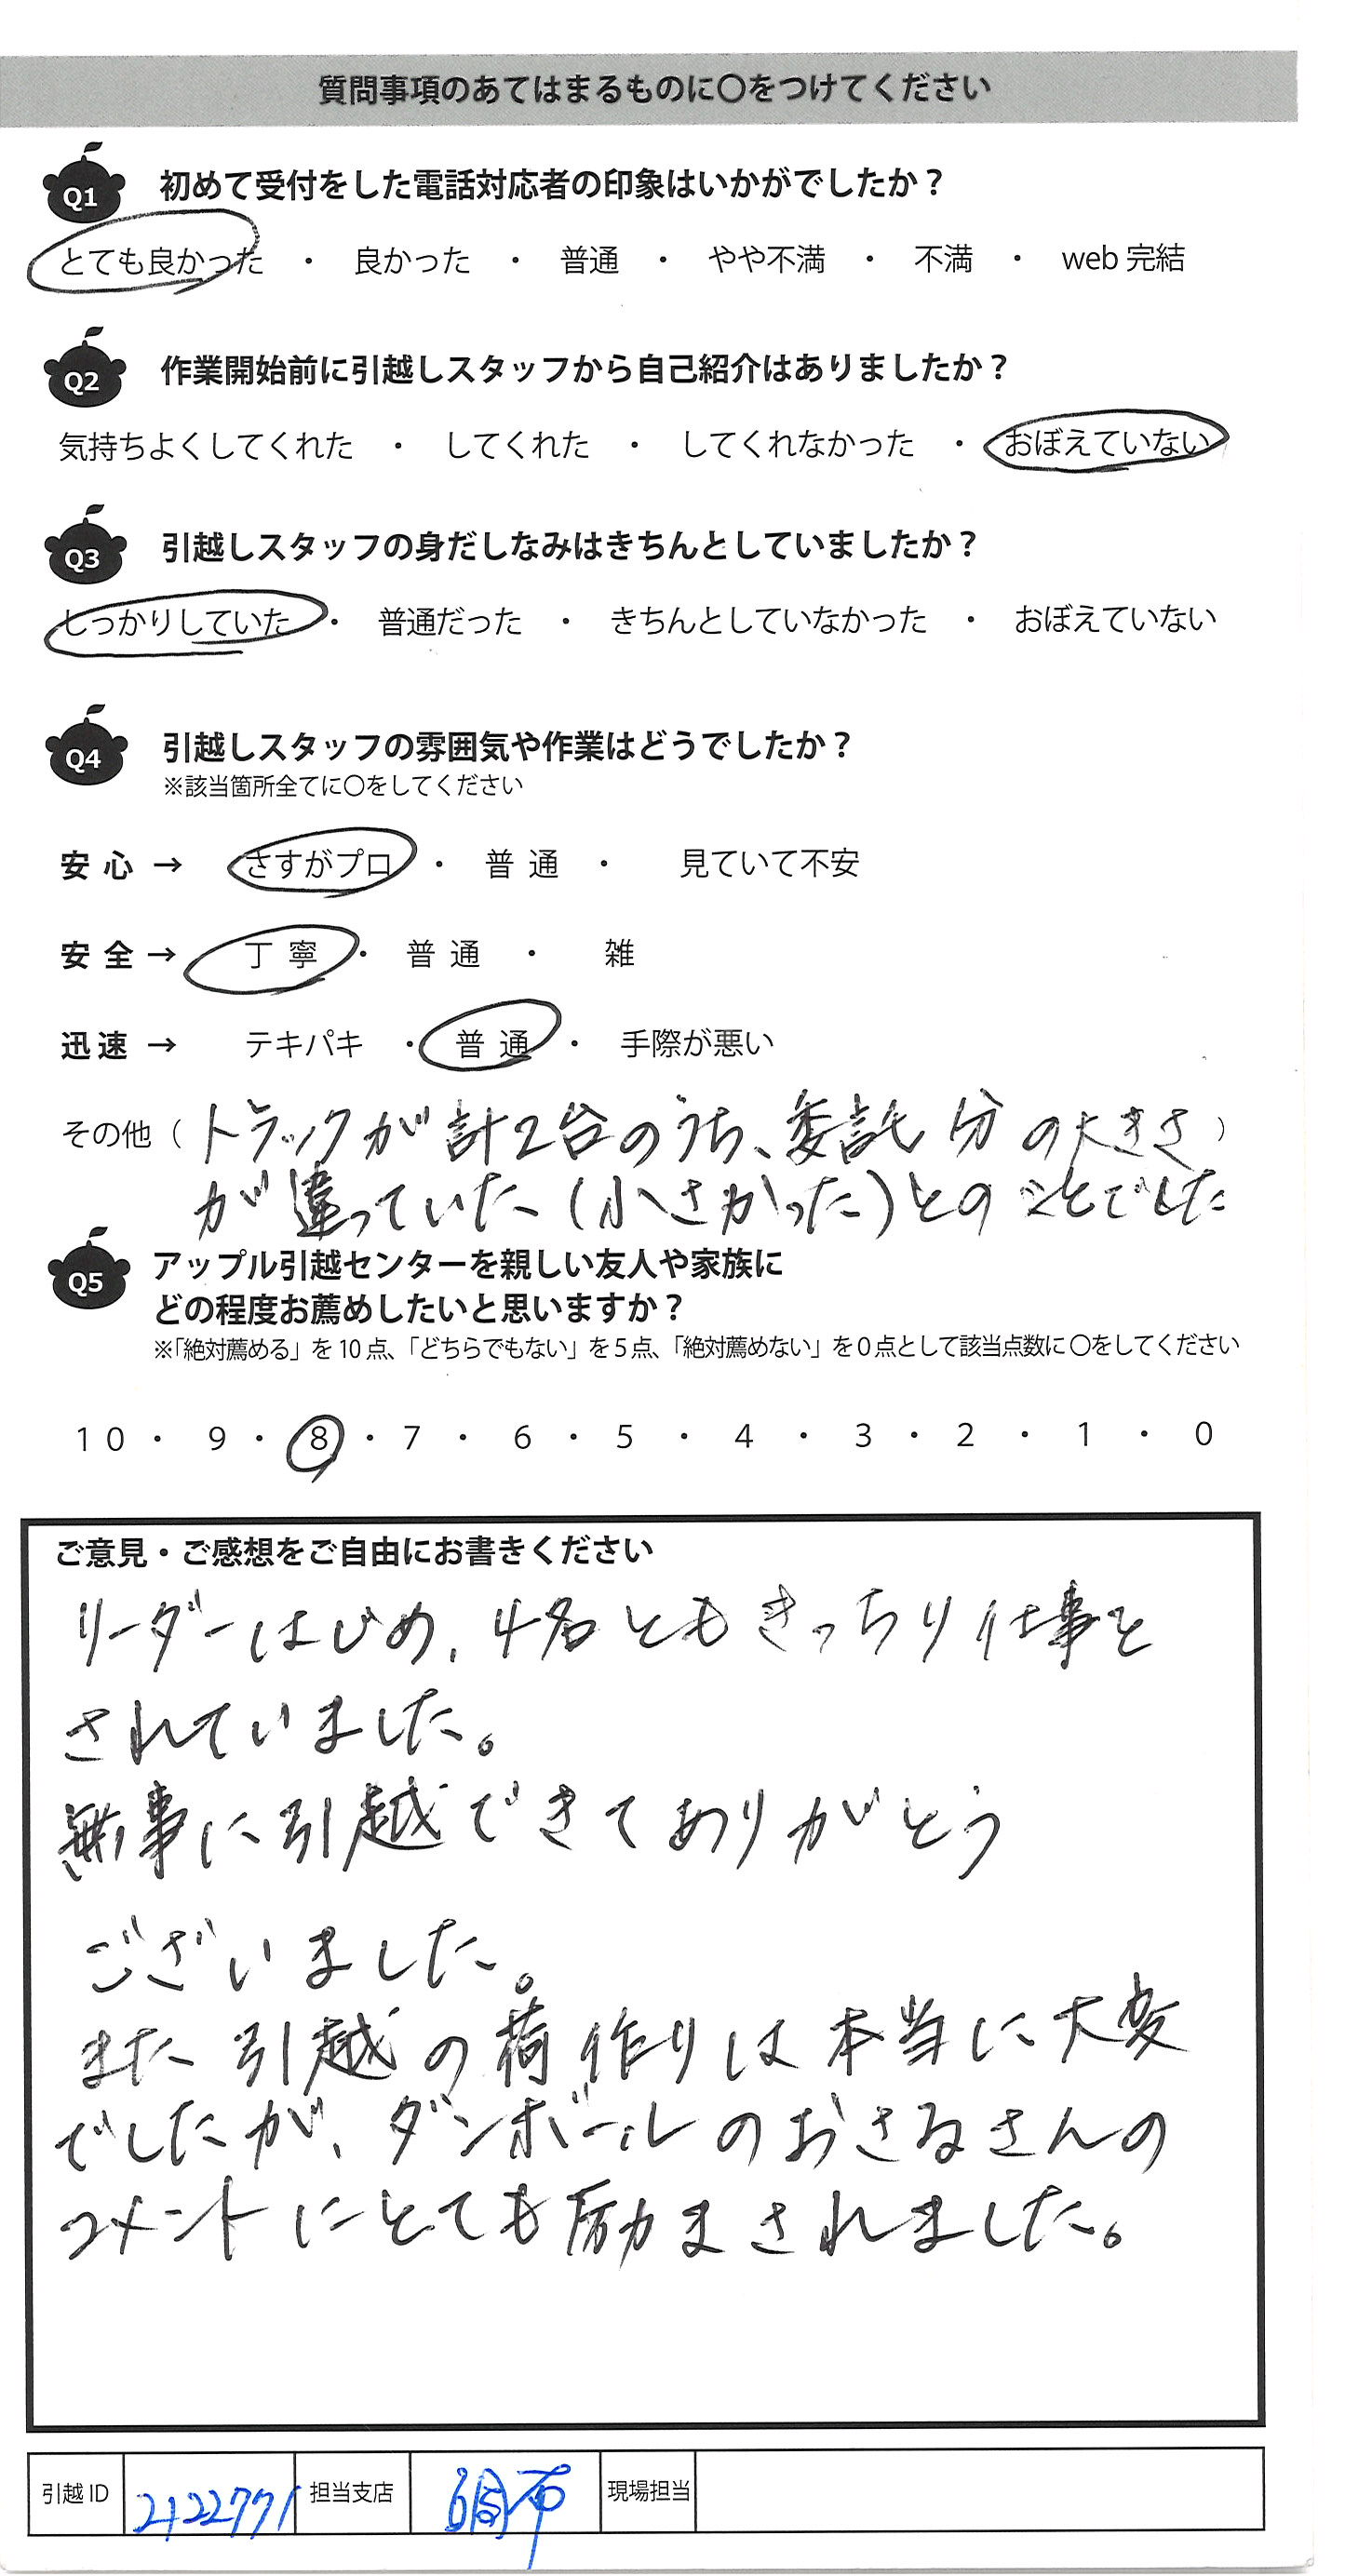 質問事項のあてはまるものに〇をつけてください
Q1 初めて受付をした電話対応者の印象はいかがでしたか？
とても良かった ・ 良かった ・ 普通 ・ やや不満 ・ 不満 ・ web 完結
Q2 作業開始前に引越しスタッフから自己紹介はありましたか？
気持ちよくしてくれた ・ してくれた ・ してくれなかった ・ おぼえていない
Q3 引越しスタッフの身だしなみはきちんとしていましたか？
しっかりしていた ・ 普通だった ・ きちんとしていなかった ・ おぼえていない
Q4 引越しスタッフの雰囲気や作業はどうでしたか？
※該当箇所全てに〇をしてください
安心 → さすがプロ ・ 普通 ・ 見ていて不安
安全 → 丁寧 ・ 普通 ・ 雑
迅速 → テキパキ ・ 普通 ・ 手際が悪い
その他（トラックが計2台のうち、委託分の大きさ）
が違っていた（小さかった）とのことでした
Q5 アップル引越センターを親しい友人や家族に
どの程度お薦めしたいと思いますか？
※「絶対薦める」を10点、「どちらでもない」を5点、「絶対薦めない」を0点として該当点数に〇をしてください
10 ・ 9 ・ 8 ・ 7 ・ 6 ・ 5 ・ 4 ・ 3 ・ 2 ・ 1 ・ 0
ご意見・ご感想をご自由にお書きください
リーダーはじめ、4名ともきっちり仕事を
されていました。
無事に引越できてありがとう
ございました。
また引越の荷作りは本当に大変
でしたが、ダンボールのおさるさんの
コメントにとても励まされました。
引越ID 2122771 担当支店 調布 現場担当